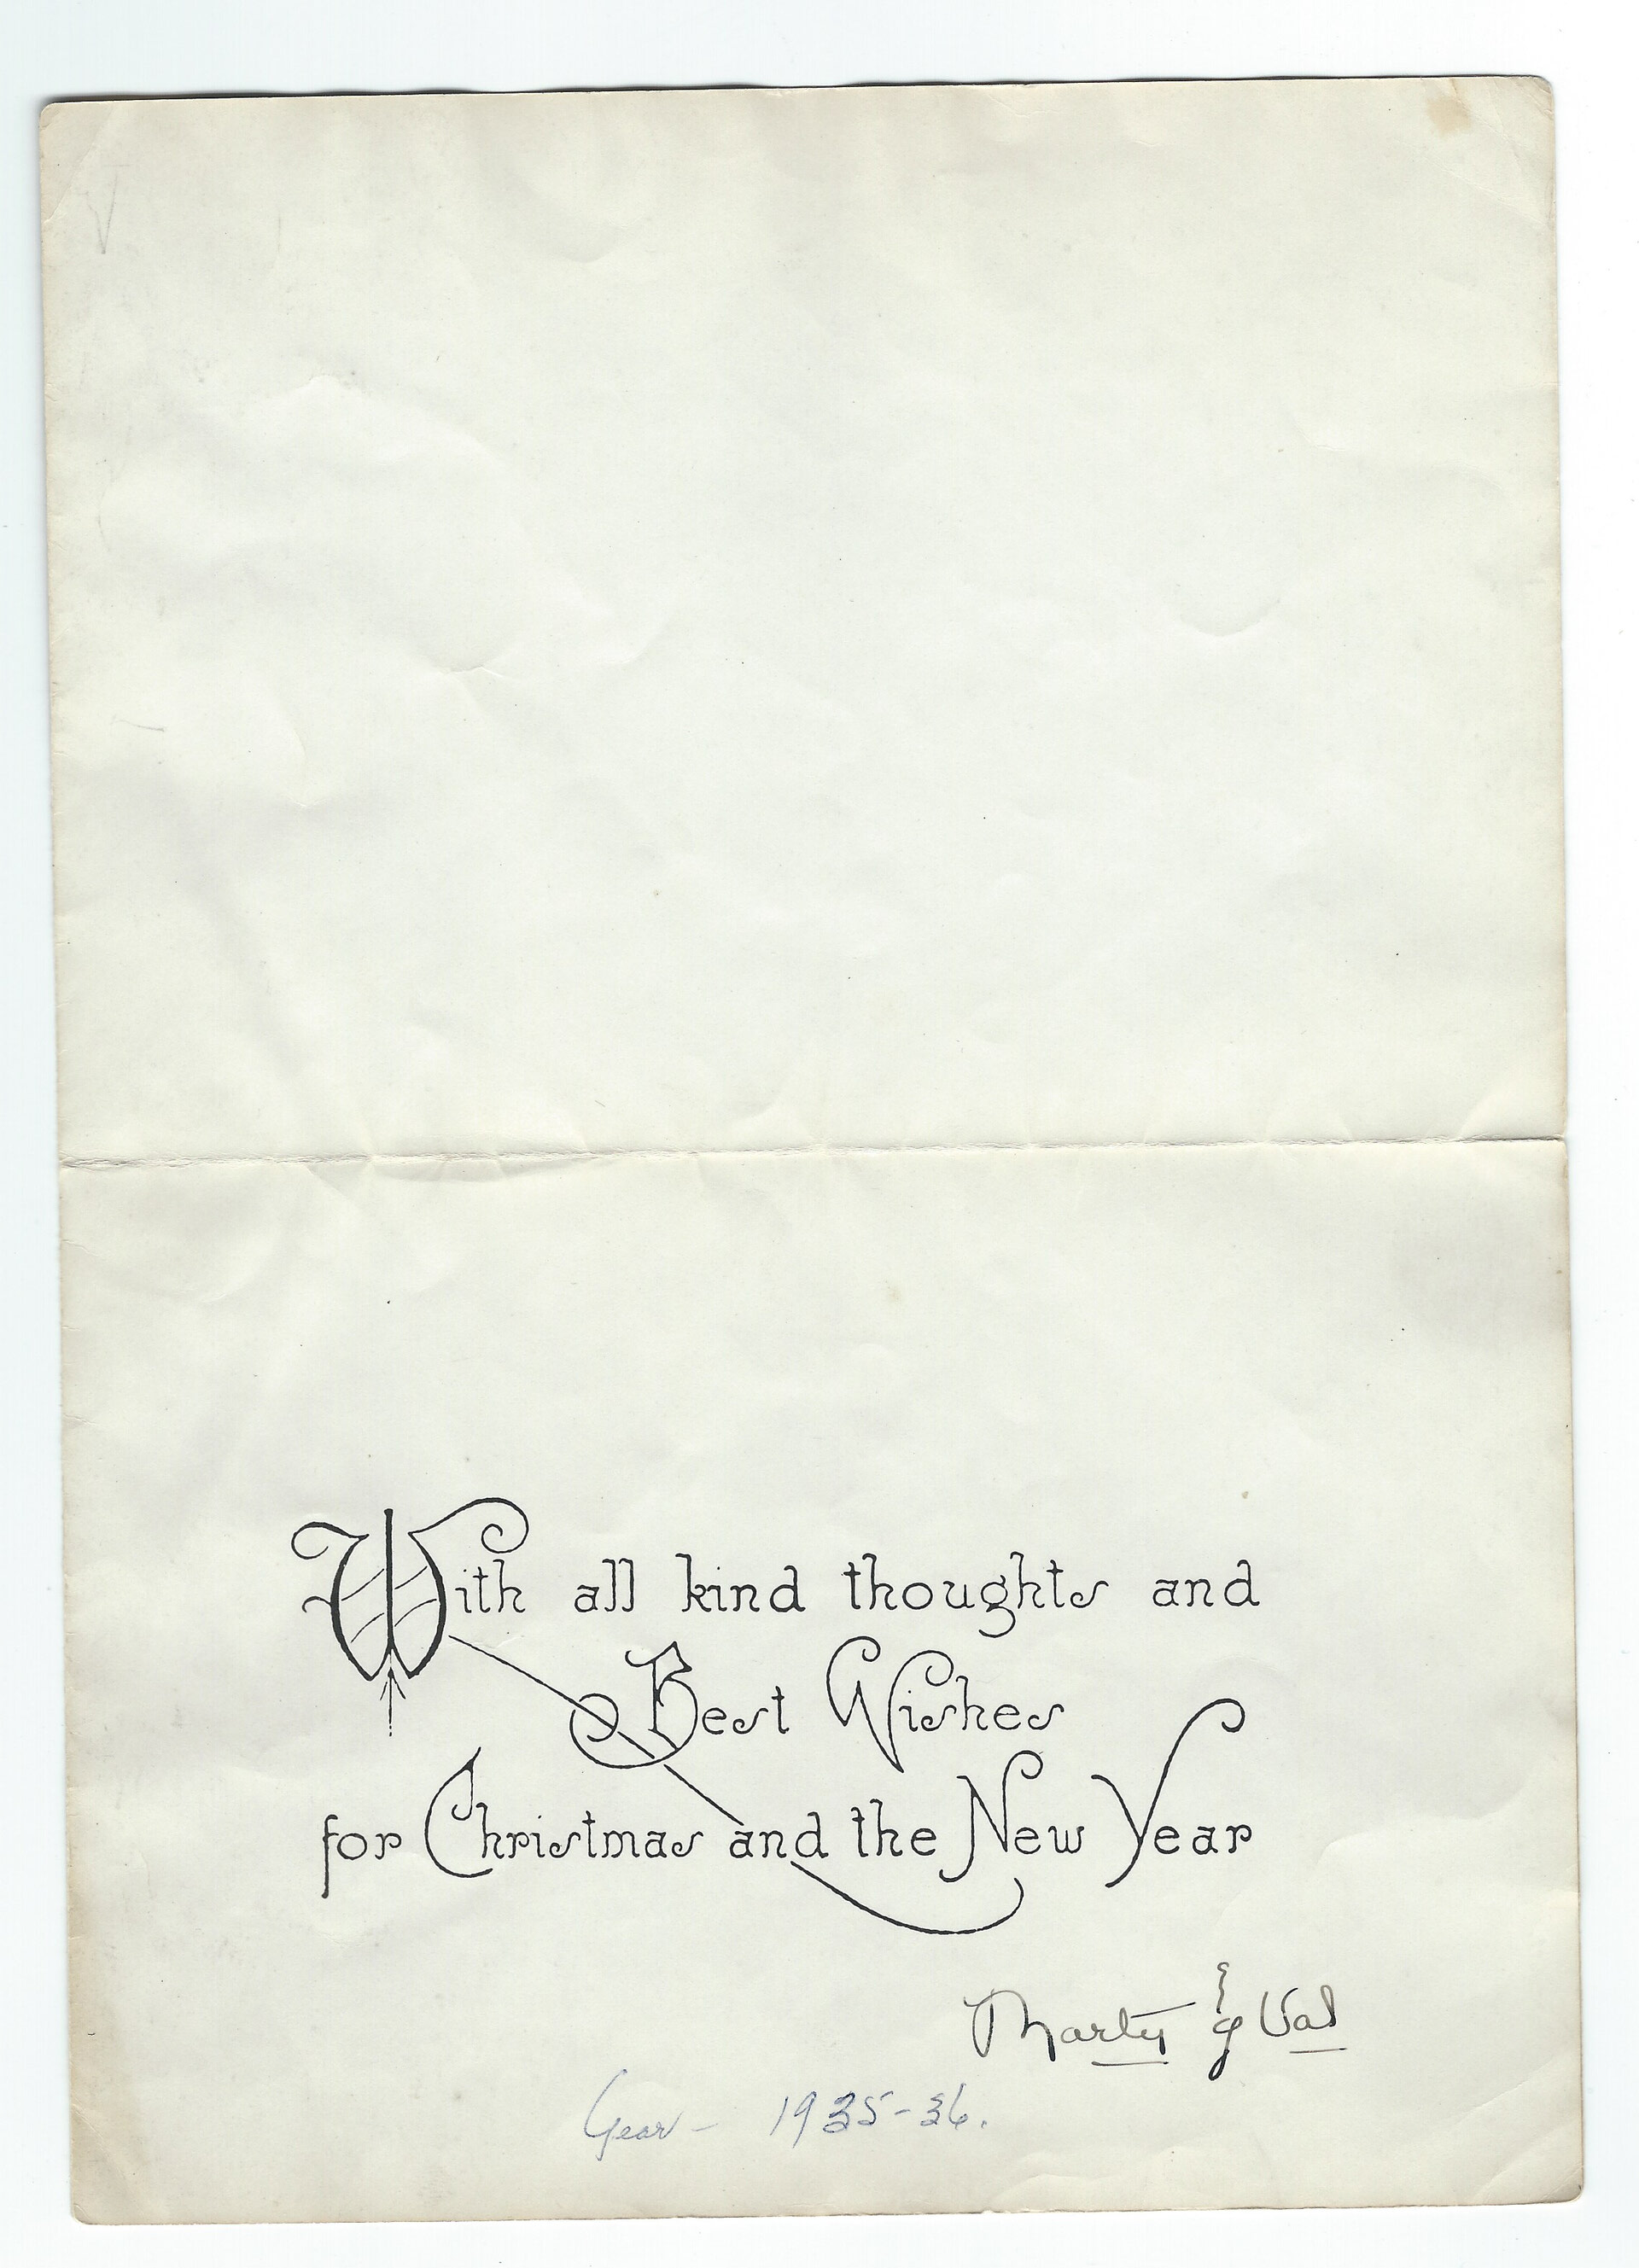 With all kind thoughts and
Best Wishes
for Christmas and the New Year
Marty & Val
Year - 1935-36.